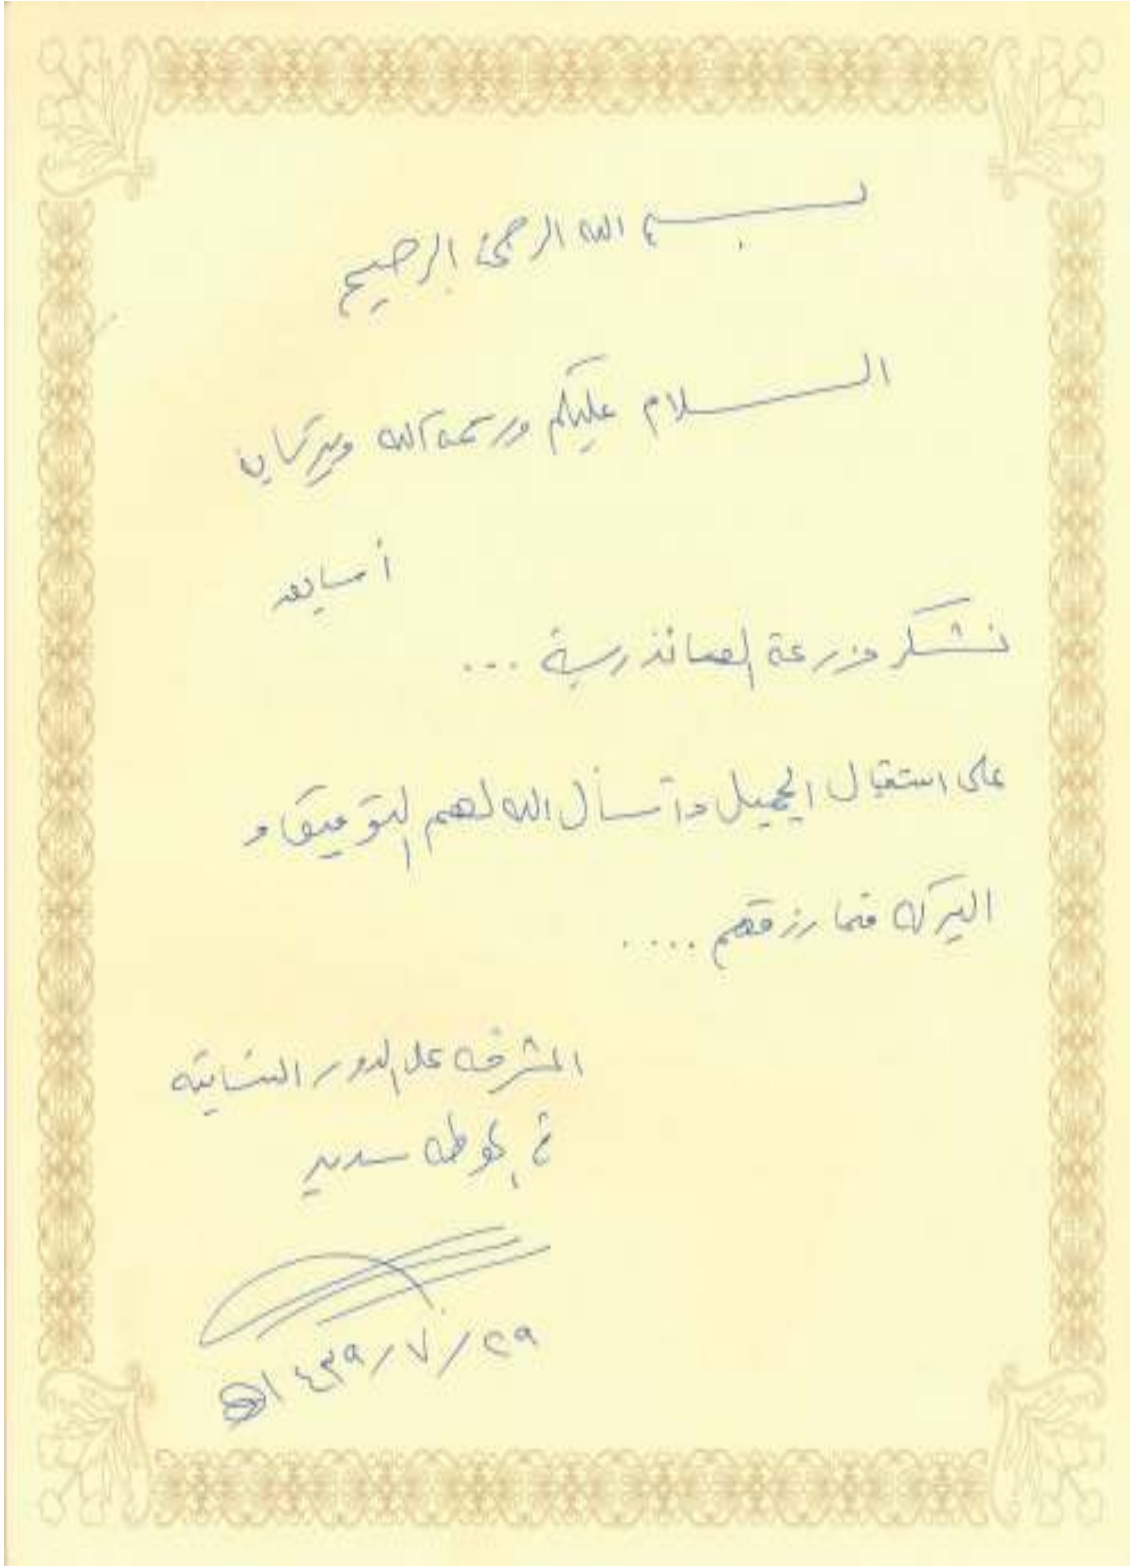 بسم الله الرحمن الرحيم
السلام عليكم ورحمة الله وبركاته
أما بعد
نشكر مزرعة ...
على استقبال الجميل وأسأل الله لهم التوفيق و
البركة فيما رزقهم ....
المشرفه على الدور النسائيه
سدير
٢٩/٧/١٤٣٩هـ